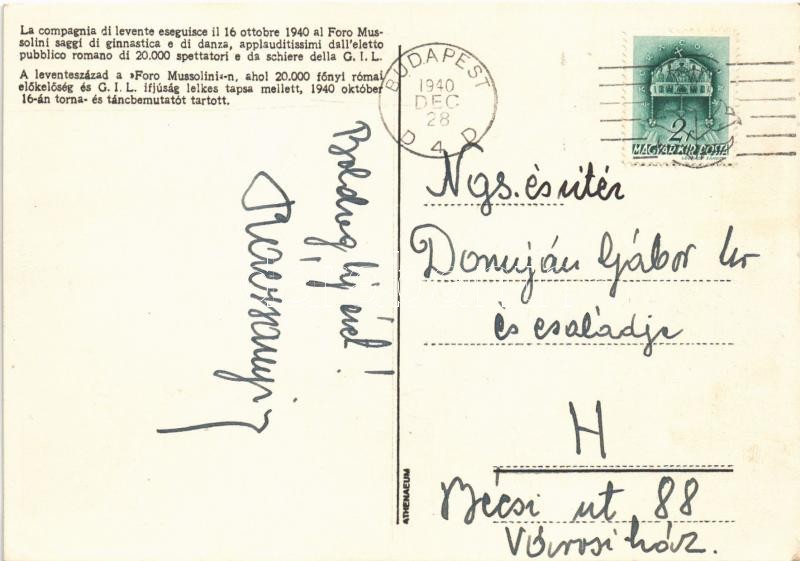 La compagnia di levente eseguisce il 16 ottobre 1940 al Foro Mus-
solini saggi di ginnastica e di danza, applauditissimi dall'eletto
pubblico romano di 20.000 spettatori e da schiere della G. I. L.
A leventeszázad a »Foro Mussolini«-n, ahol 20.000 főnyi római
előkelőség és G. I. L. ifjúság lelkes tapsa mellett, 1940 október
16-án torna- és táncbemutatót tartott.
BUDAPEST
1940
DEC
28
D 4 D
2f
MAGYAR KIR. POSTA
Boldog új évet!
Ngs. és vitéz
Domján Gábor úr
és családja
H
Bécsi út 88
Városi ház.
ATHENAEUM